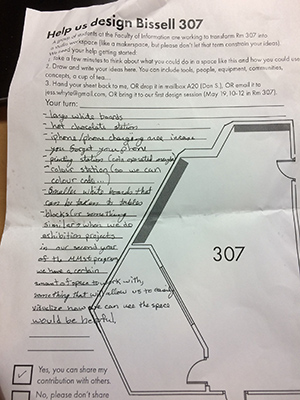 Help us design Bissell 307
A group of students at the Faculty of Information are working to transform Rm 307 into
a studio workspace (like a makerspace, but please don't let that term constrain your ideas).
We need your help getting started:
1. Take a few minutes to think about what you could do in a space like this and how you could use
2. Draw and write your ideas here. You can include tools, people, equipment, communities,
concepts, a cup of tea...
3. Hand your sheet back to me, OR drop it in mailbox A20 (Dan S.), OR email it to
jess.whyte@gmail.com, OR bring it to our first design session (May 19, 10-12 in Rm 307).
Your turn:
- large white boards
- hot chocolate station
- iphone/phone charging area incase
you forget your phone
- printing station (coin operated maybe)
- colour station (so we can
colour code...)
- Smaller white boards that
can be taken to tables
- blocks or something
similar - when we do
exhibition projects
in our second year
of the MMSt program
we have a certain
amount of space to work with,
something that will allow us to really
visualize how we can use the space
would be helpful.
307
✓
Yes, you can share my
contribution with others.
No, please don't share